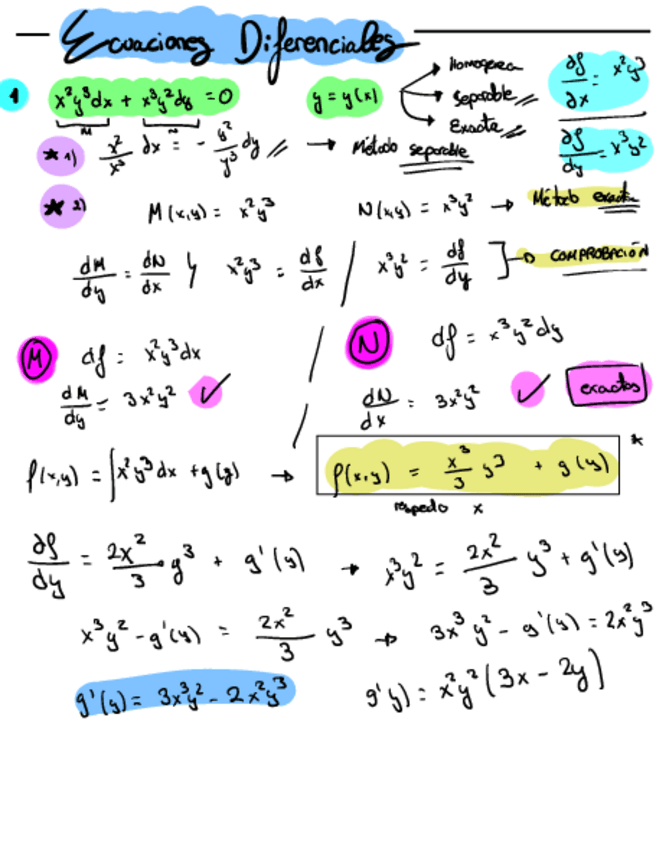 Ecuaciones Diferenciales
1 x²y³dx + x³y²dy = 0 y = y(x) → Homogenea ∂f/∂x = x²y³
M N → Separable
→ Exacta ∂f/dy = x³y²
* 1) x²/x³ dx = - y²/y³ dy → Método separable
* 2) M(x,y) = x²y³ N(x,y) = x³y² → Método exacta
dM/dy = dN/dx y x²y³ = df/dx / x³y² = df/dy ] → COMPROBACIÓN
M df = x²y³dx / N df = x³y²dy
dM/dy = 3x²y² ✓ dN/dx = 3x²y² ✓ exactos
f(x,y) = ∫x²y³dx + g(y) → f(x,y) = x³/3 y³ + g(y) *
respecto x
∂f/dy = 2x²/3 · y³ + g'(y) → x³y² = 2x²/3 y³ + g'(y)
x³y² - g'(y) = 2x²/3 y³ → 3x³y² - g'(y) = 2x²y³
g'(y) = 3x³y² - 2x²y³ g'y) = x²y²(3x - 2y)